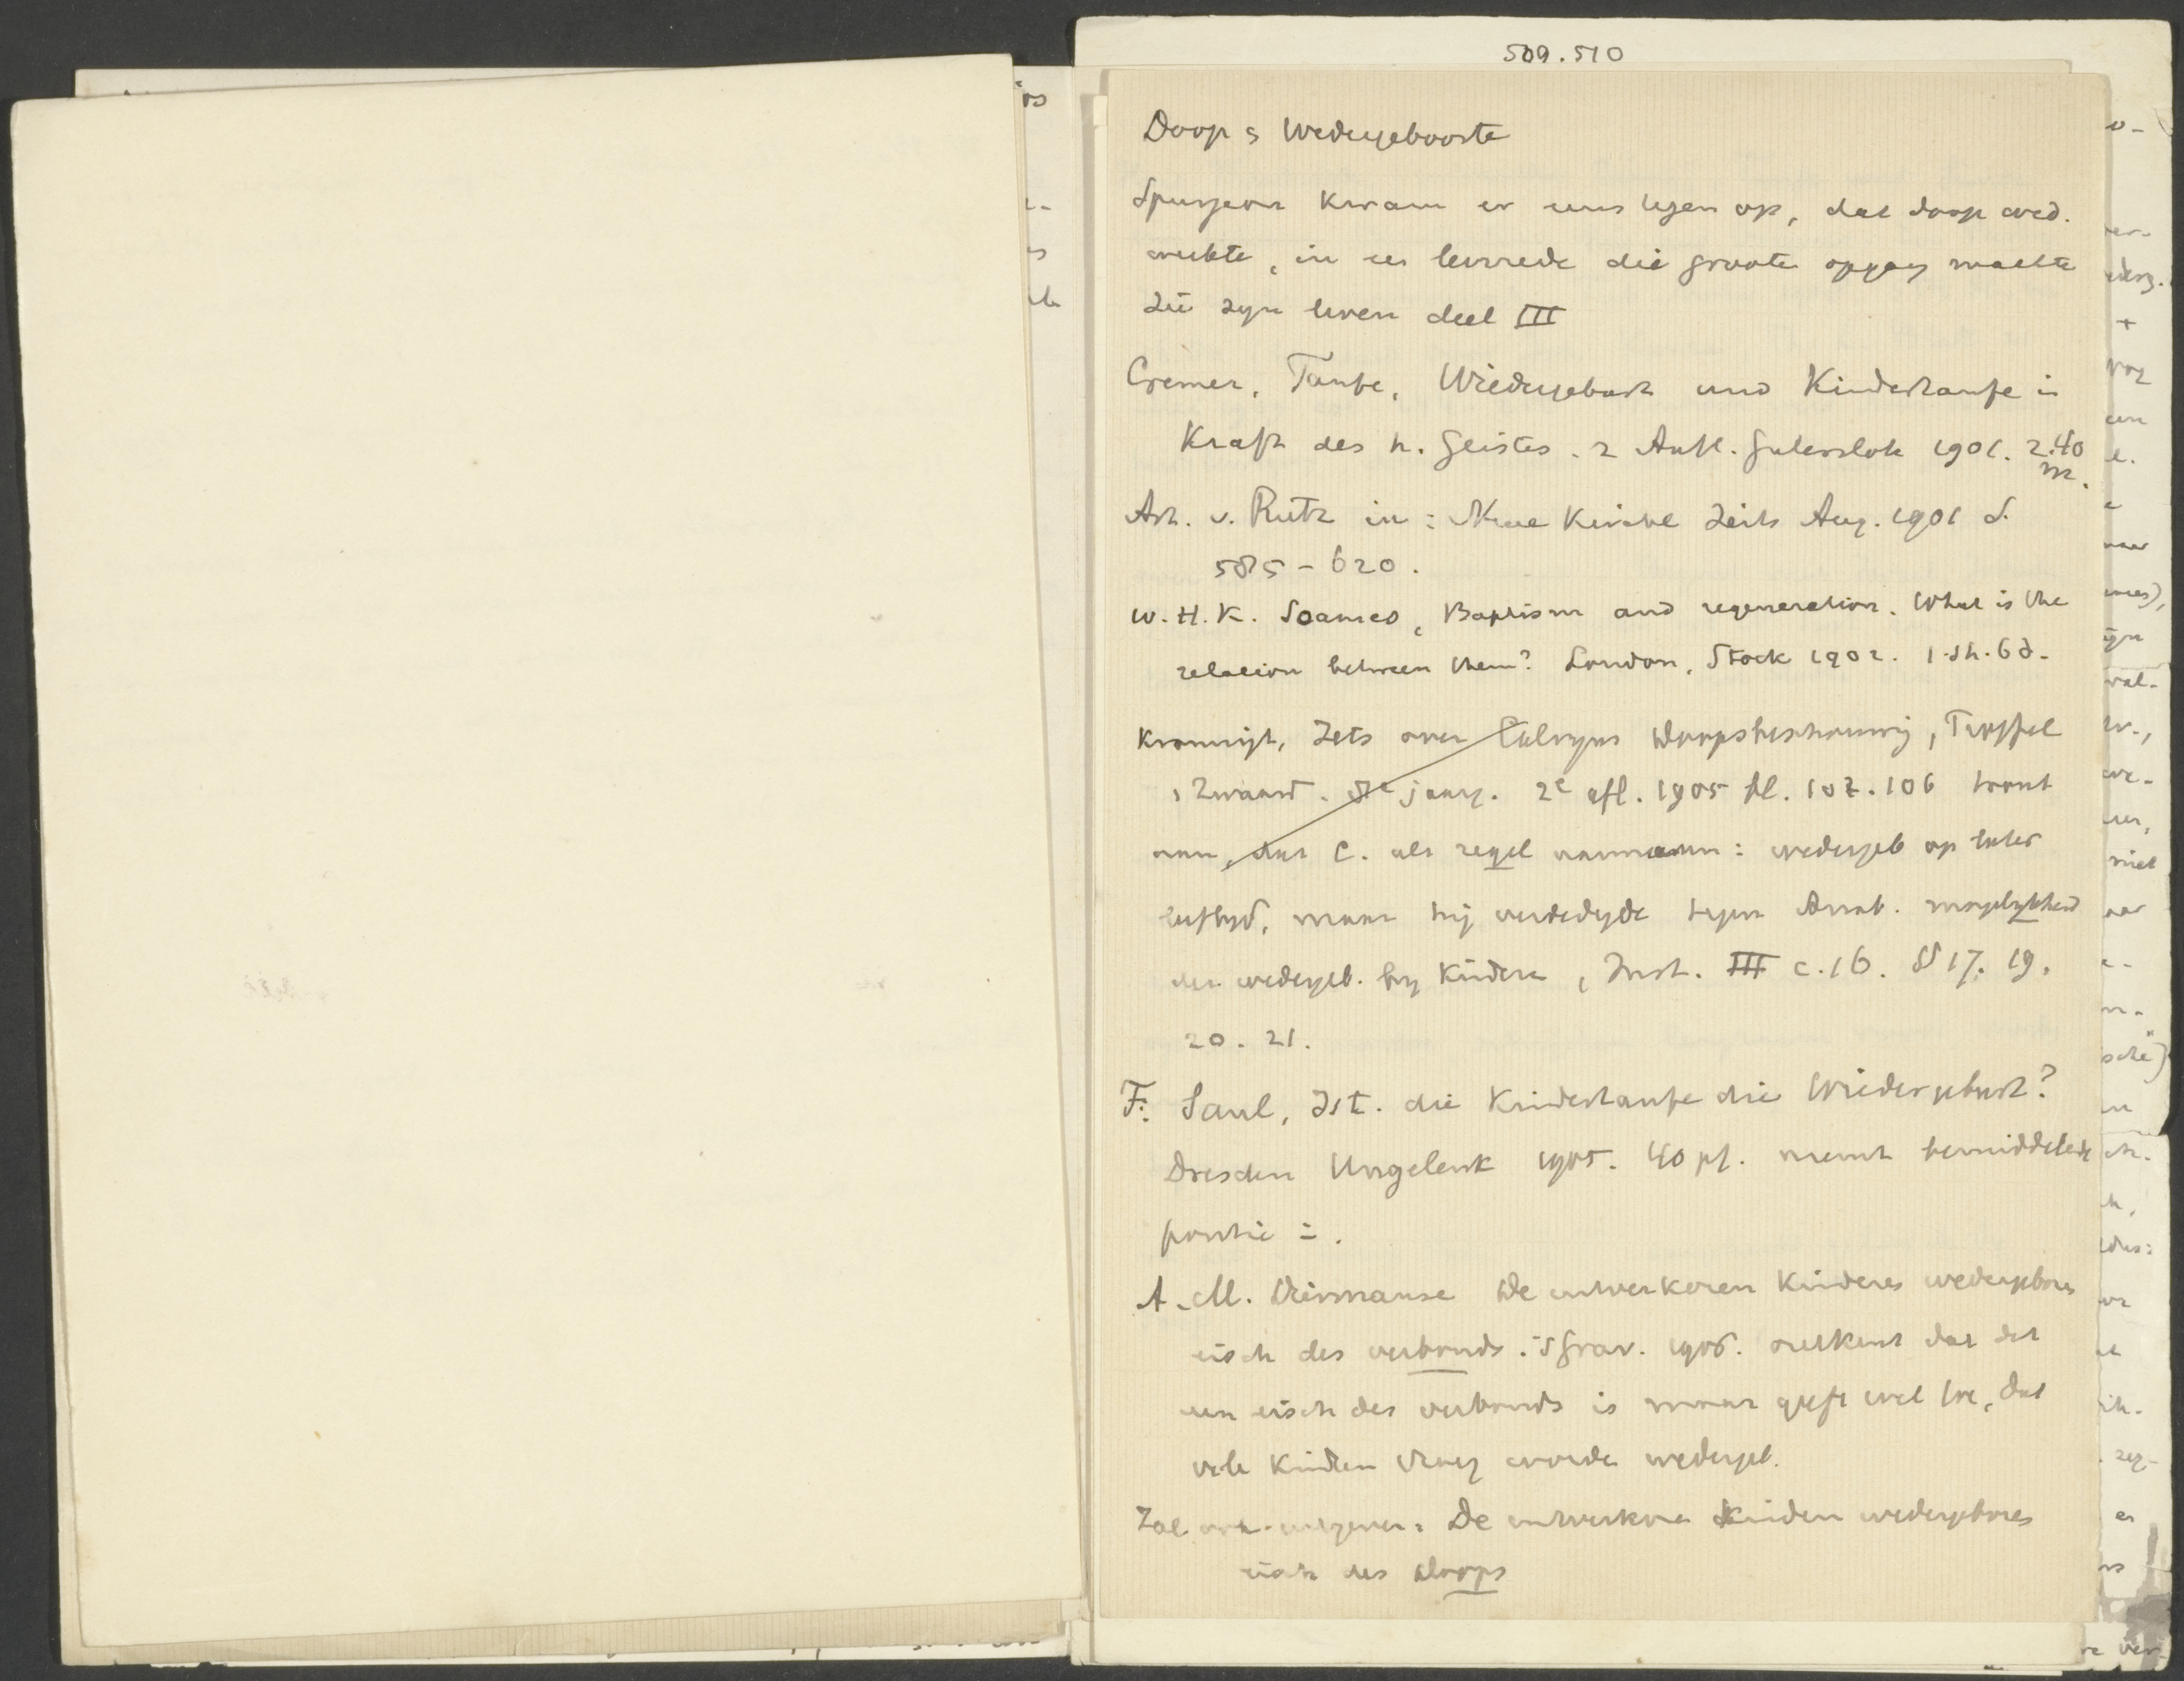 509.510
Doop & Wedergeboorte
Spurgeon kwam er eens tegen op, dat doop wed.
werkte, in een leerrede die groote opgang maakte
Zie zyn leven deel III
Cremer, Taufe, Wiedergeburt und Kindertaufe in
Kraft des h. Geistes. 2 Aufl. Gutersloh 1901. 2.40
M.
Art. v. Rutz in: Neue Kirchl Zeits Aug. 1901 S.
585-620.
W.H.K. Soames, Baptism and regeneration. What is the
relation between them? London, Stock 1902. 1.sh.6d.
Kramer, Iets over Calvyns Doopsbeschouwing, Troffel
& Zwaard. 8e jaarg. 2e afl. 1905 bl. 102.106 toont
aan, dat C. als regel aannam: wedergeb op later
leeftyd, maar hij verdedigde tegen Anab. mogelykheid
der wedergeb. by kinderen, Inst. c.16. §§ 17. 19.
20. 21.
F. Saul, Ist. die Kindertaufe die Wiedergeburt?
Dresden Ungelenk 1905. 40 pf. neemt bemiddelende
positie in.
A.M. Diermanse De uitverkoren kinderen wedergeboren
eisch des verbonds. 'sGrav. 1906. ontkent dat dit
een eisch des verbonds is maar geeft wel toe, dat
vele kinderen vroeg worden wedergeb.
Zal ook uitgeven: De uitverkoren kinderen wedergeboren
eisch des doops